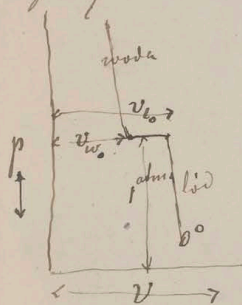 woda
v_{l_0}
p v_{w_0}
1 atm lód
0°
v